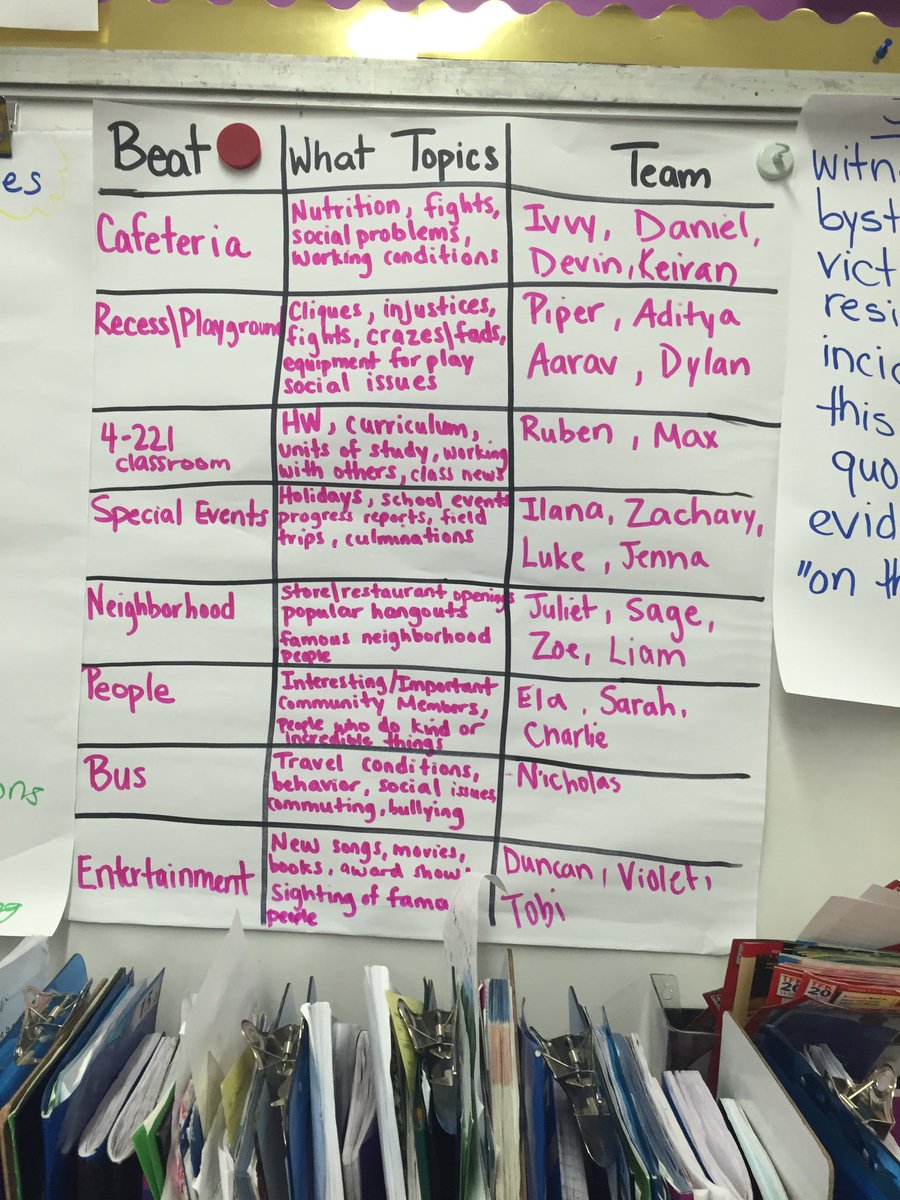 Beat
What Topics
Team
Cafeteria
Nutrition, fights,
social problems,
working conditions
Ivvy, Daniel,
Devin, Keiran
Recess\Playground
Cliques, injustices,
fights, crazes\fads,
equipment for play
social issues
Piper, Aditya
Aarav, Dylan
4-221
classroom
HW, curriculum,
units of study, working
with others, class news
Ruben, Max
Special Events
Holidays, school events
progress reports, field
trips, culminations
Ilana, Zachary,
Luke, Jenna
Neighborhood
Store/restaurant openings
popular hangouts
famous neighborhood
people
Juliet, Sage,
Zoe, Liam
People
Interesting/Important
Community Members,
people who do kind or
incredible things
Ela, Sarah,
Charlie
Bus
Travel conditions,
behavior, social issues
commuting, bullying
Nicholas
Entertainment
New songs, movies,
books, award show
Sighting of fama
people
Duncan, Violet,
Tobi
es
ons
witn
byst
vict
resi
incid
this
quo
evid
"on th